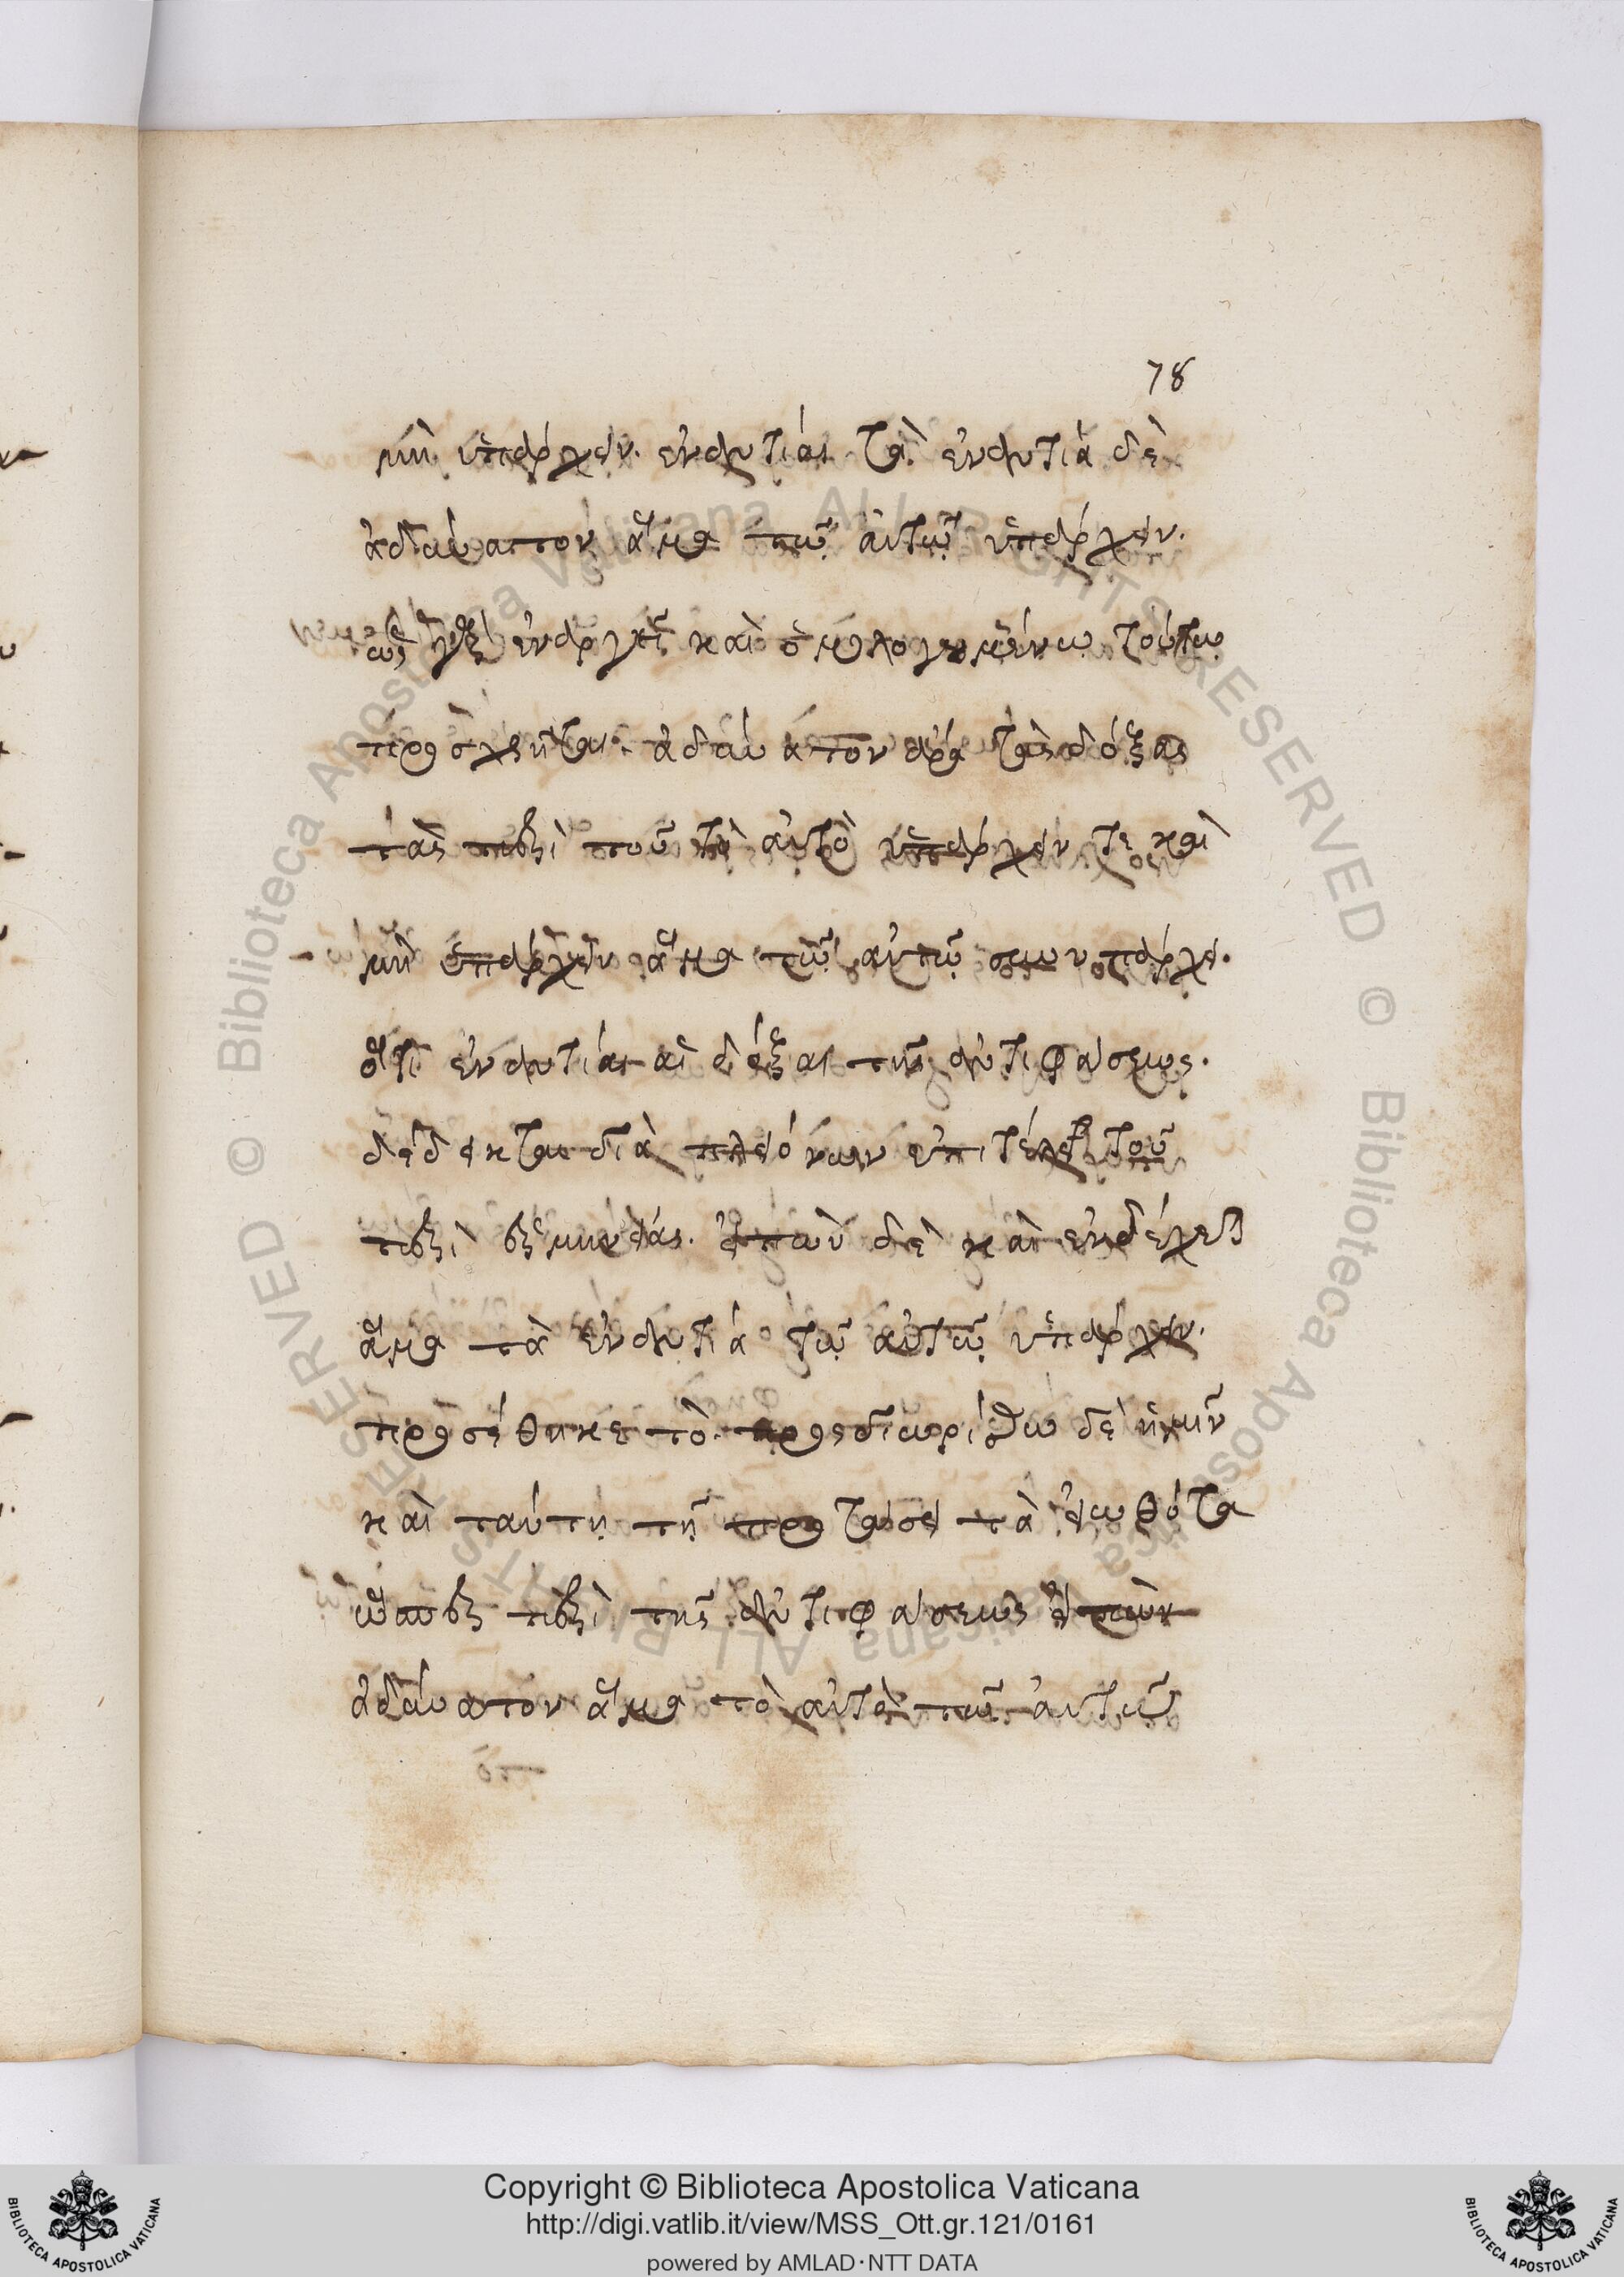 78
μὴ ὑπάρχειν. ἐναντίαι. τὰ ἐναντία δὲ
ἀδύνατον ἅμα τῷ αὐτῷ ὑπάρχειν.
ὡς ἐναργεῖ καὶ ὁμολογουμένῳ τούτῳ
προσχρῆται. ἀδύνατον ἄρα τὰς δόξας
τὰς περὶ τοῦ τὸ αὐτὸ ὑπάρχειν τε καὶ
μὴ ὑπάρχειν ἅμα τῷ αὐτῷ συνυπάρχειν.
ὅτι ἐναντίαι αἱ δόξαι τῆς ἀντιφάσεως.
δέδεικται διὰ πλειόνων ἐπὶ τέλει τοῦ
περὶ ἑρμηνείας. εἰπὼν δὲ καὶ ἐνδέχεται
ἅμα τὰ ἐναντία τῷ αὐτῷ ὑπάρχειν.
προσέθηκε τὸ. προσδιωρίσθω δὲ ἡμῖν
καὶ ταύτῃ τῇ προτάσει τὰ εἰωθότα
ὥσπερ περὶ τῆς ἀντιφάσεως εἰπὼν
ἀδύνατον ἅμα τὸ αὐτὸ τῷ αὐτῷ
Copyright © Biblioteca Apostolica Vaticana
http://digi.vatlib.it/view/MSS_Ott.gr.121/0161
powered by AMLAD·NTT DATA
BIBLIOTECA APOSTOLICA VATICANA
BIBLIOTECA APOSTOLICA VATICANA
© Biblioteca Apostolica Vaticana ALL RIGHTS RESERVED
© Biblioteca Apostolica Vaticana ALL RIGHTS RESERVED